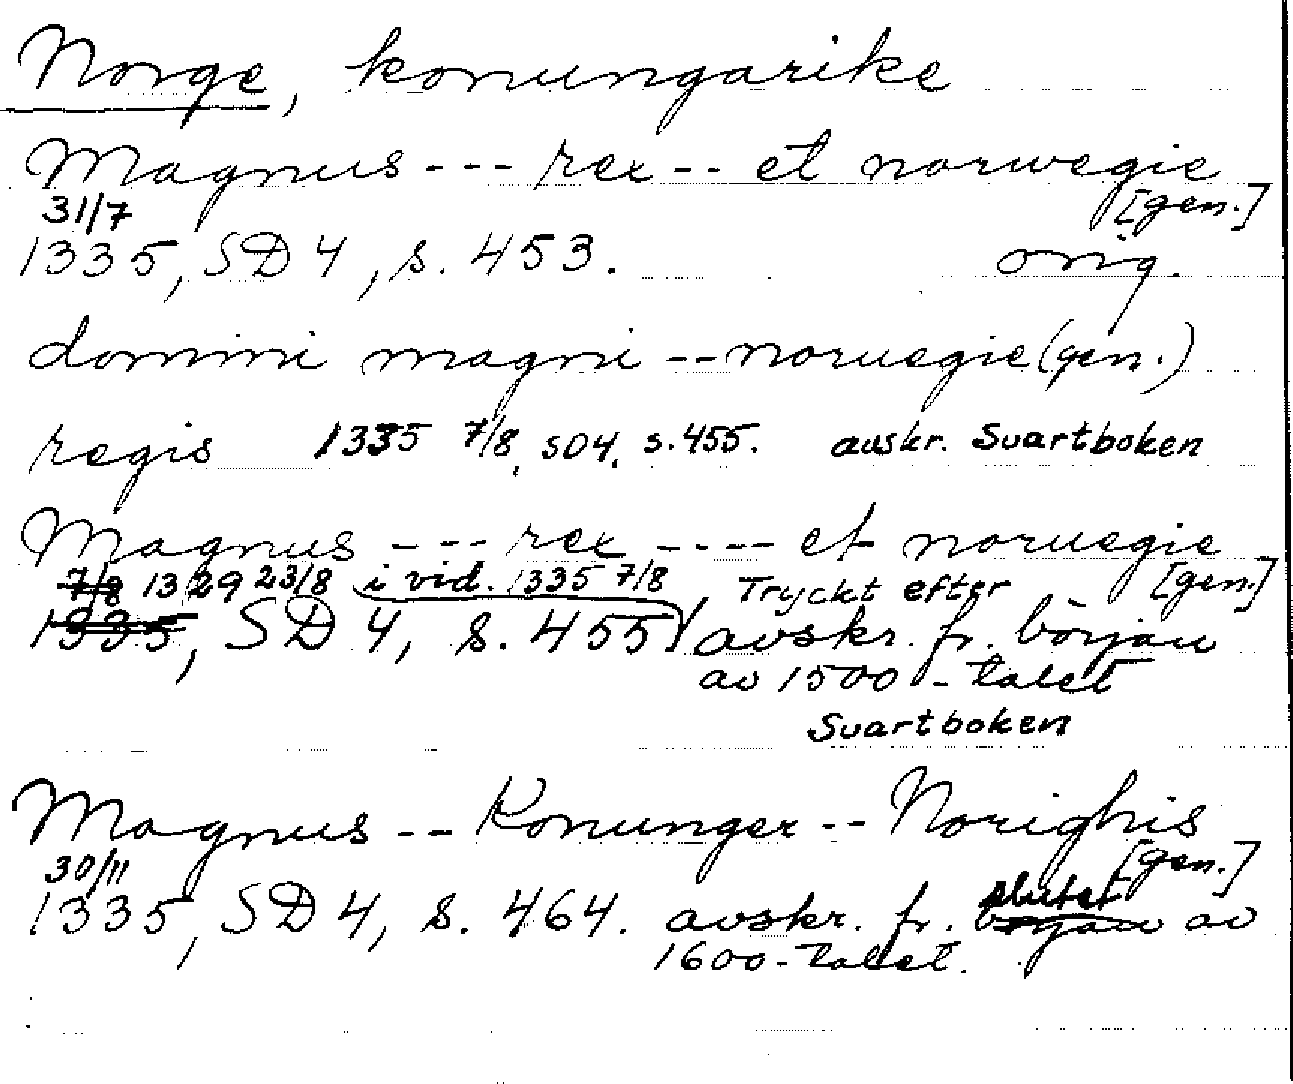 Norge, konungarike
Magnus --- rex -- et norwegie
31/7 [gen.]
1335, SD 4, s. 453. orig.
domini magni -- noruegie (gen.)
regis 1335 7/8, SD4, s. 455. avskr. Svartboken
Magnus --- rex ---- et noruegie
7/8 1329 23/8 i vid. 1335 7/8 Tryckt efter [gen.]
1335, SD 4, s. 455 avskr. fr. början
av 1500-talet
Svartboken
Magnus -- Konunger -- Norighis
30/11 [gen.]
1335, SD 4, s. 464. avskr. fr. början slutet av
1600-talet.